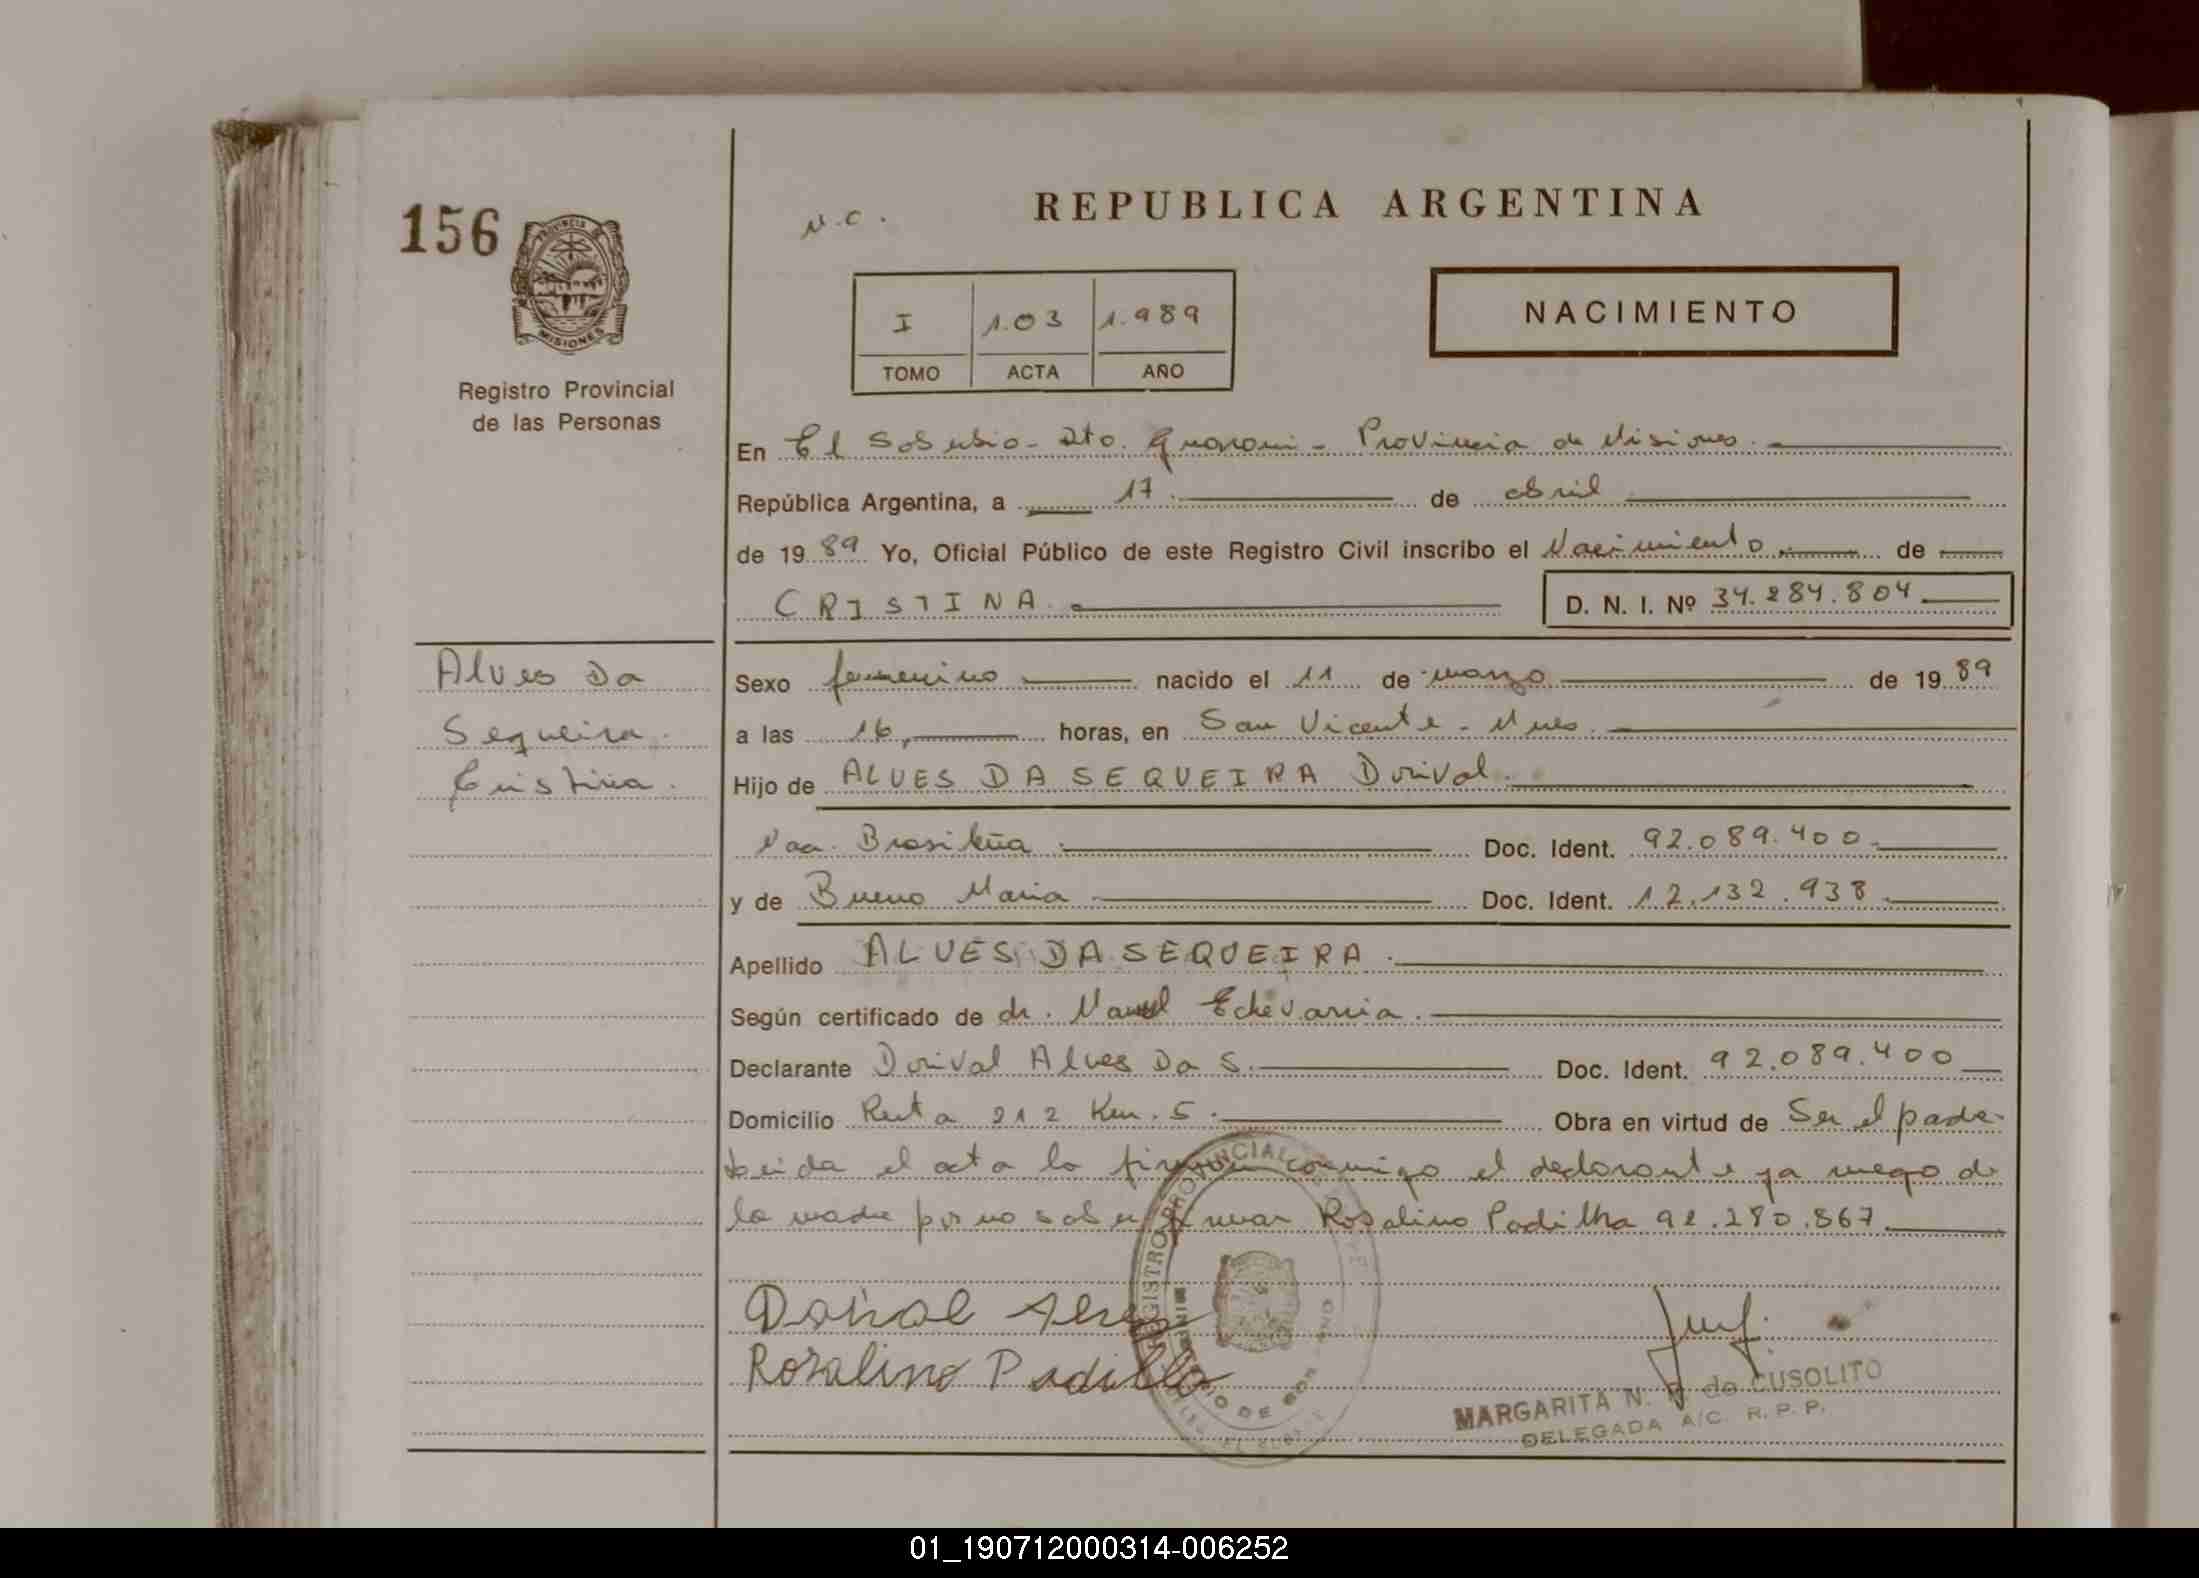 156
PROVINCIA DE
MISIONES
Registro Provincial
de las Personas
N.C.
REPUBLICA ARGENTINA
NACIMIENTO
I 1.03 1.989
TOMO ACTA AÑO
En El Soberbio - Dto. Guarani - Provincia de Misiones.
República Argentina, a 17 de abril
de 1989 Yo, Oficial Público de este Registro Civil inscribo el Nacimiento de
CRISTINA D. N. I. Nº 34.284.804
Alves Da
Sequeira
Cristina.
Sexo femenino nacido el 11 de marzo de 1989
a las 16, horas, en San Vicente - Mnes.
Hijo de ALVES DA SEQUEIRA Dorival.
Nac. Brasileña Doc. Ident. 92.089.400
y de Bueno Maria Doc. Ident. 12.132.938
Apellido ALVES DA SEQUEIRA
Según certificado de dr. Manuel Echevarria.
Declarante Dorival Alves Da S. Doc. Ident. 92.089.400
Domicilio Ruta 212 Km. 5. Obra en virtud de Ser el padre
Leida el acta la firman conmigo el declarante y a ruego de
la madre por no saber firmar Rosalino Padilha 92.280.867
REGISTRO PROVINCIAL DE
Dorival Alves
Rosalino Padilla
MARGARITA N. de CUSOLITO
DELEGADA A/C. R. P. P.
01_190712000314-006252